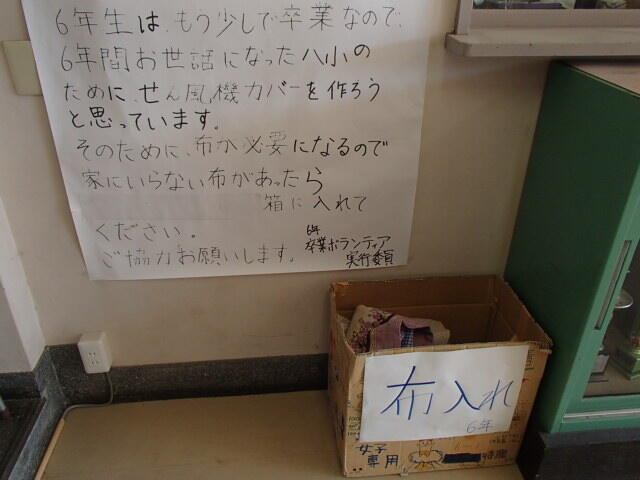 6年生は、もう少しで卒業なので、
6年間お世話になった八小の
ために、せん風機カバーを作ろう
と思っています。
そのために、布が必要になるので
家にいらない布があったら
箱に入れて
ください。
ご協力お願いします。
6年
卒業ボランティア
実行委員
布入れ
6年
女子
専用